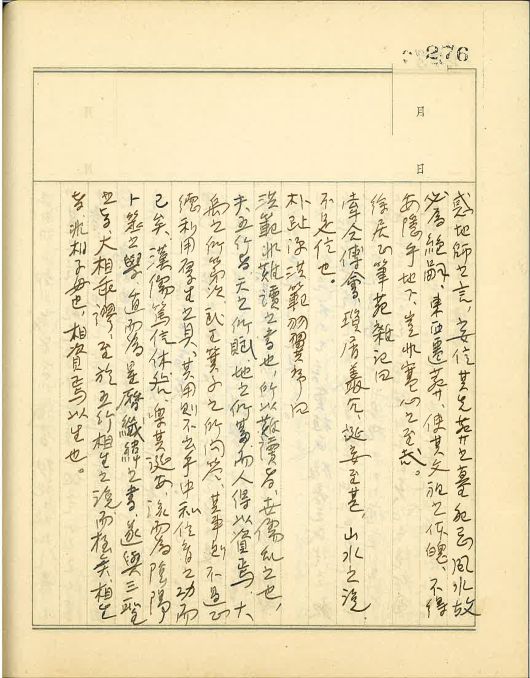 276
月
日
惑地師之言，妄信其先葬之墓犯忌風水故
必爲絕嗣，東西遷葬，使其父祖之体魄，不得
安隱乎地下，豈非寒心之至哉。
徐居正筆苑雜記曰
牽合傅會，誕妄至甚，山水之說
不足信也。
朴趾源洪範羽翼序曰
洪範非難讀之書也，所以難讀者，世儒亂之也，
夫五行者天之所賦，地之所蓄而人得以資焉，大
禹之所第次，武王箕子之所問答，其事則不過正
德利用厚生之具，其用則不出乎中和位育之功而
已矣，漢儒篤信休咎，說而爲陰陽
卜筮之學，遁而爲星曆讖緯之書，遂與三聖
之旨大相乖謬，至於五行相生之說而極矣，相生
者非相子母也，相資焉以生也。